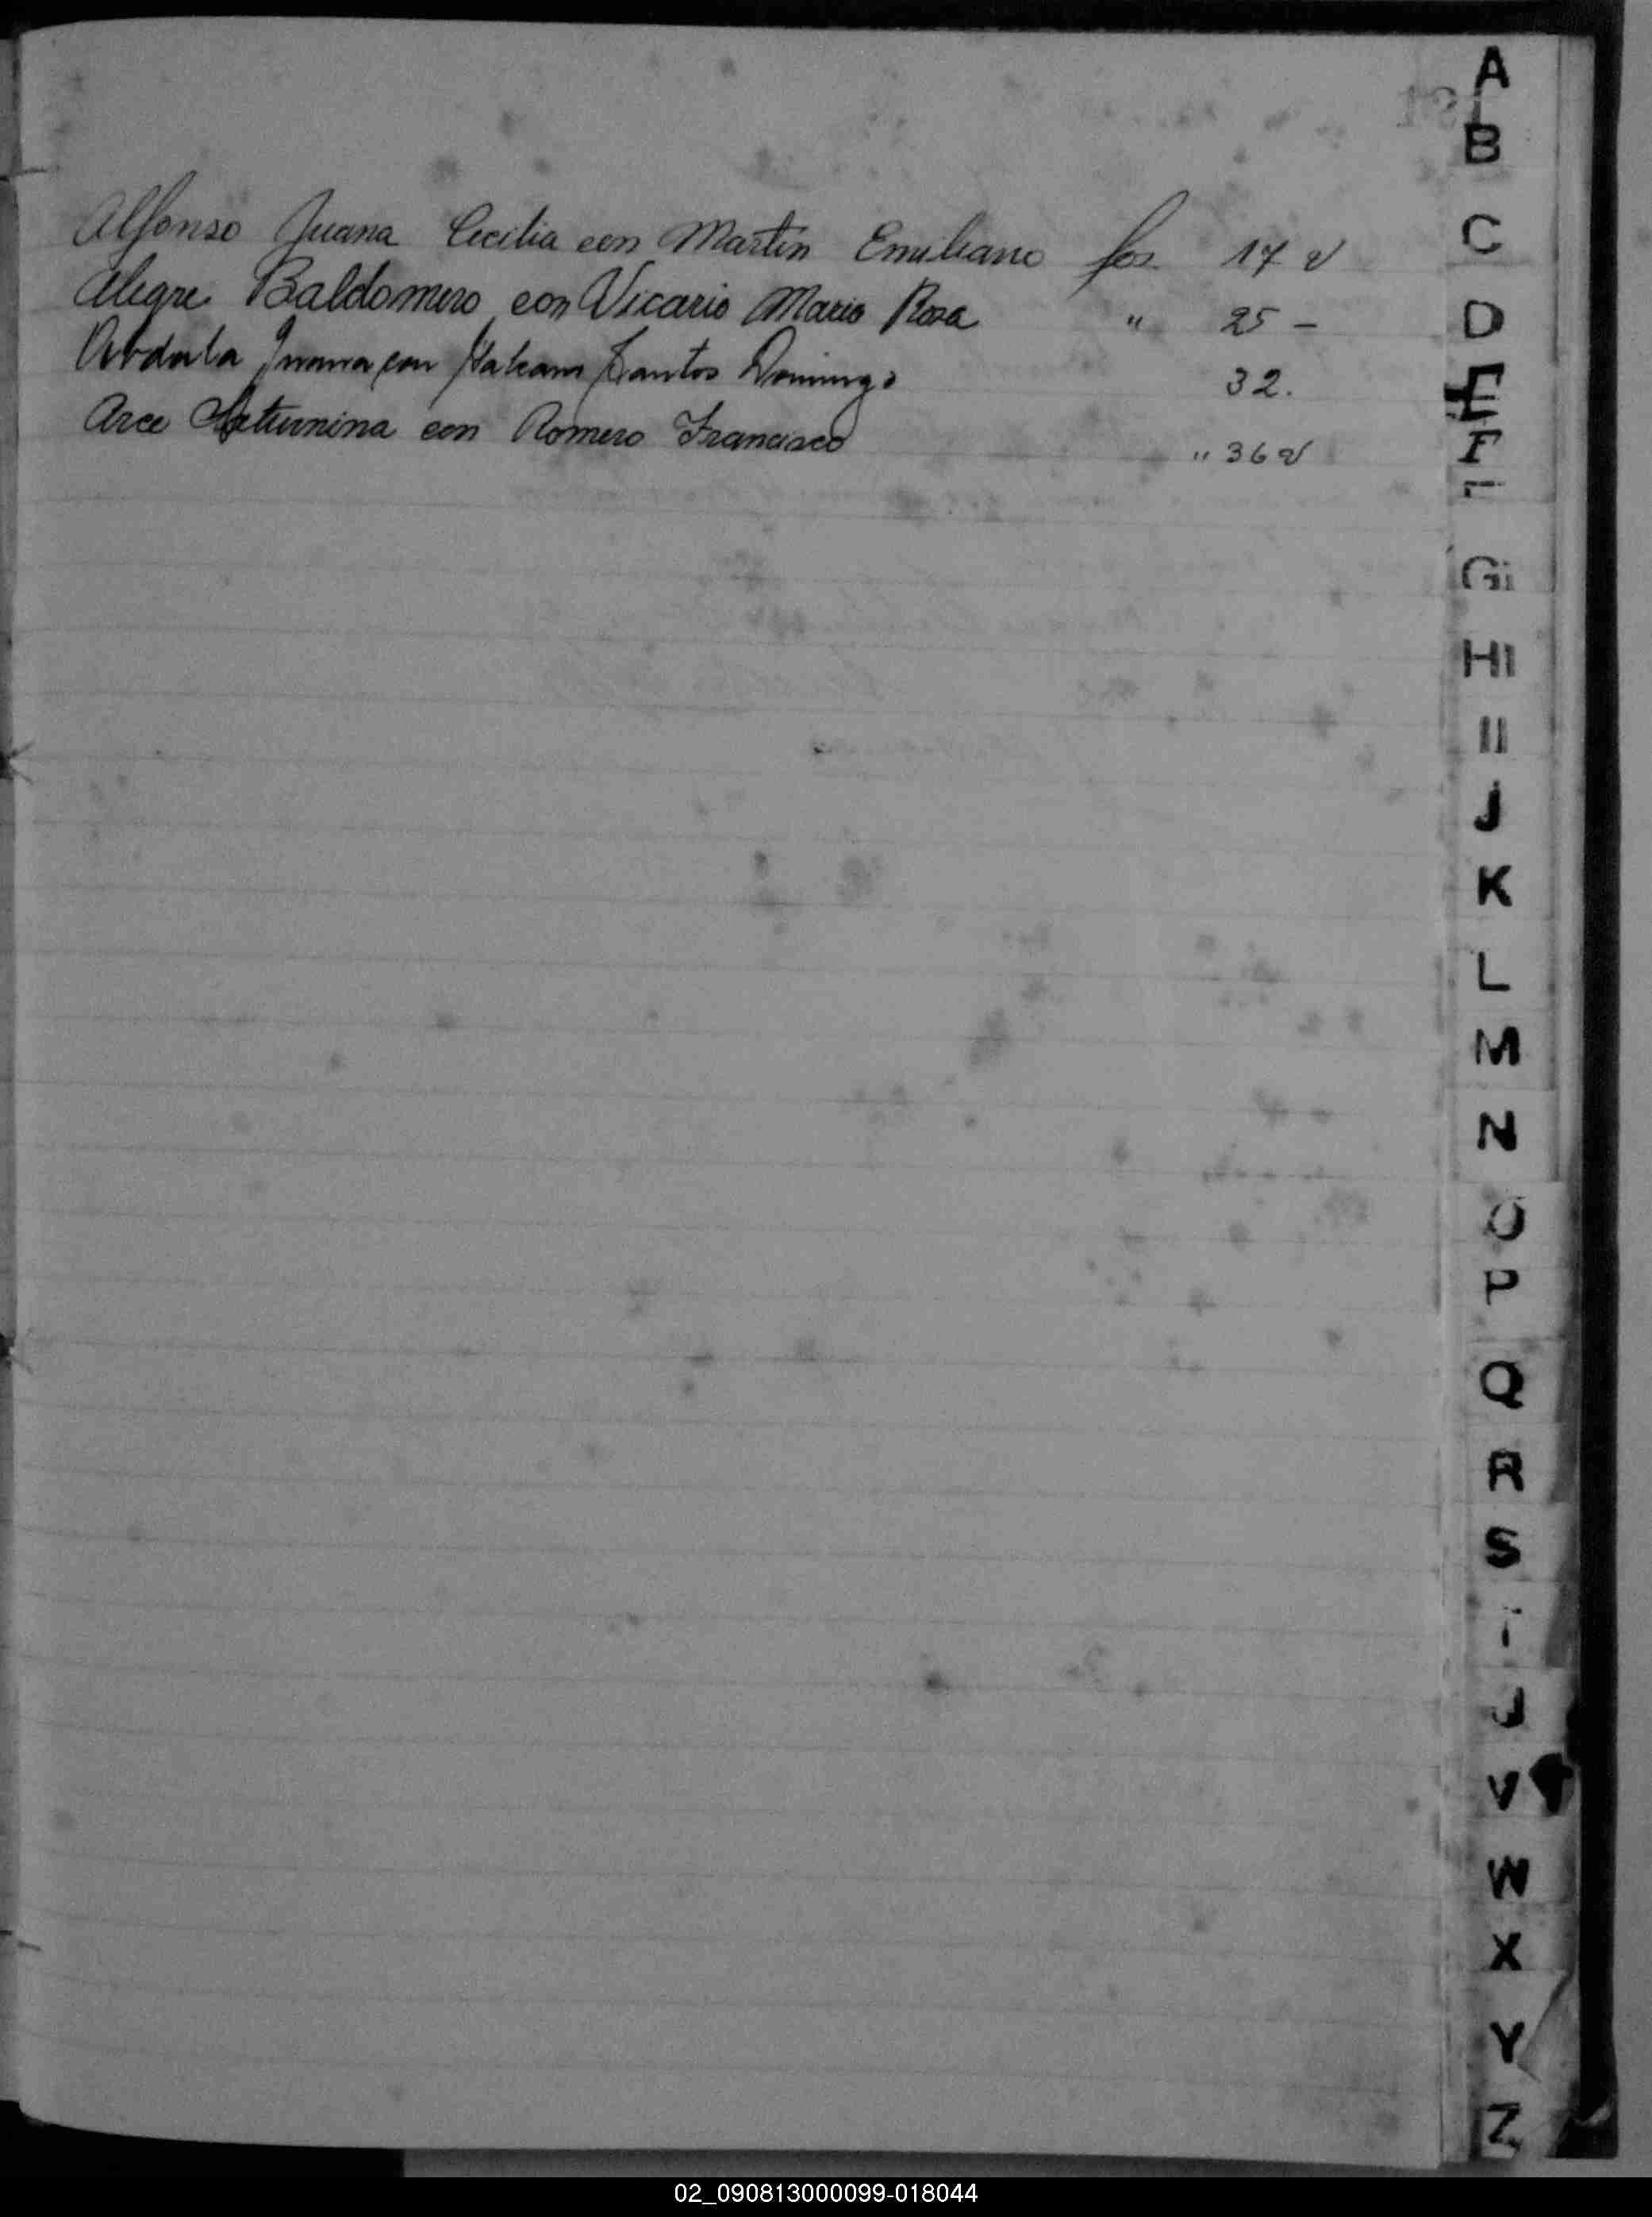 Alfonso Juana Cecilia con Martin Emiliano fos 17 v
Alegre Baldomero con Vicario Maria Rosa " 25 -
Juana con Santos Domingo 32.
Arce Saturnina con Romero Francisco " 36 v
A
B
C
D
E
F
G
H
I
J
K
L
M
N
O
P
Q
R
S
V
W
X
Y
Z
02_090813000099-018044